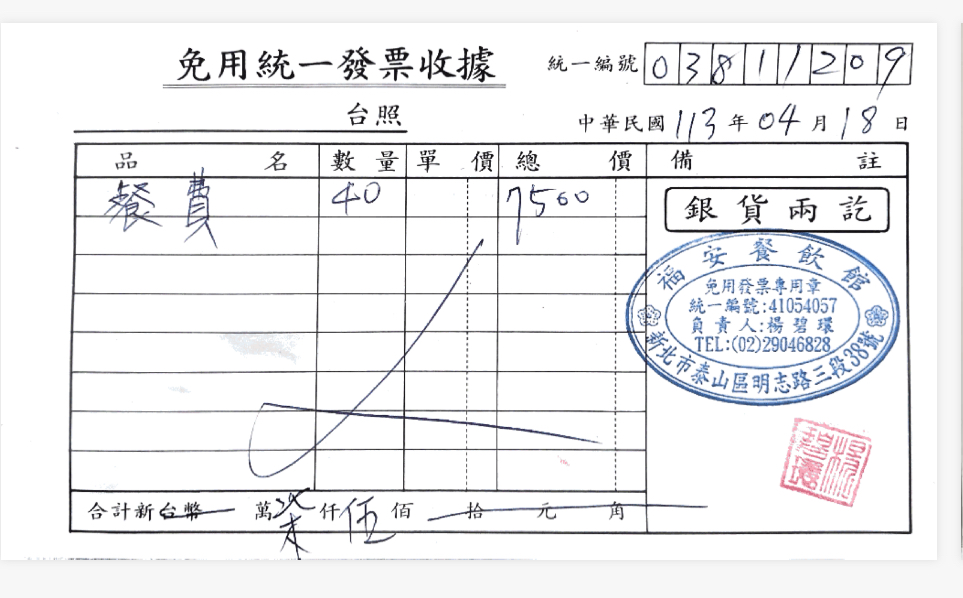 免用統一發票收據
統一編號 03811209
台照
中華民國 113 年 04 月 18 日
品名 數量 單價 總價 備註
餐費 40 7500
銀貨兩訖
福安餐飲館
免用發票專用章
統一編號:41054057
負責人:楊碧環
TEL:(02)29046828
新北市泰山區明志路三段38號
楊碧環
合計新台幣 萬 柒 仟 伍 佰 拾 元 角